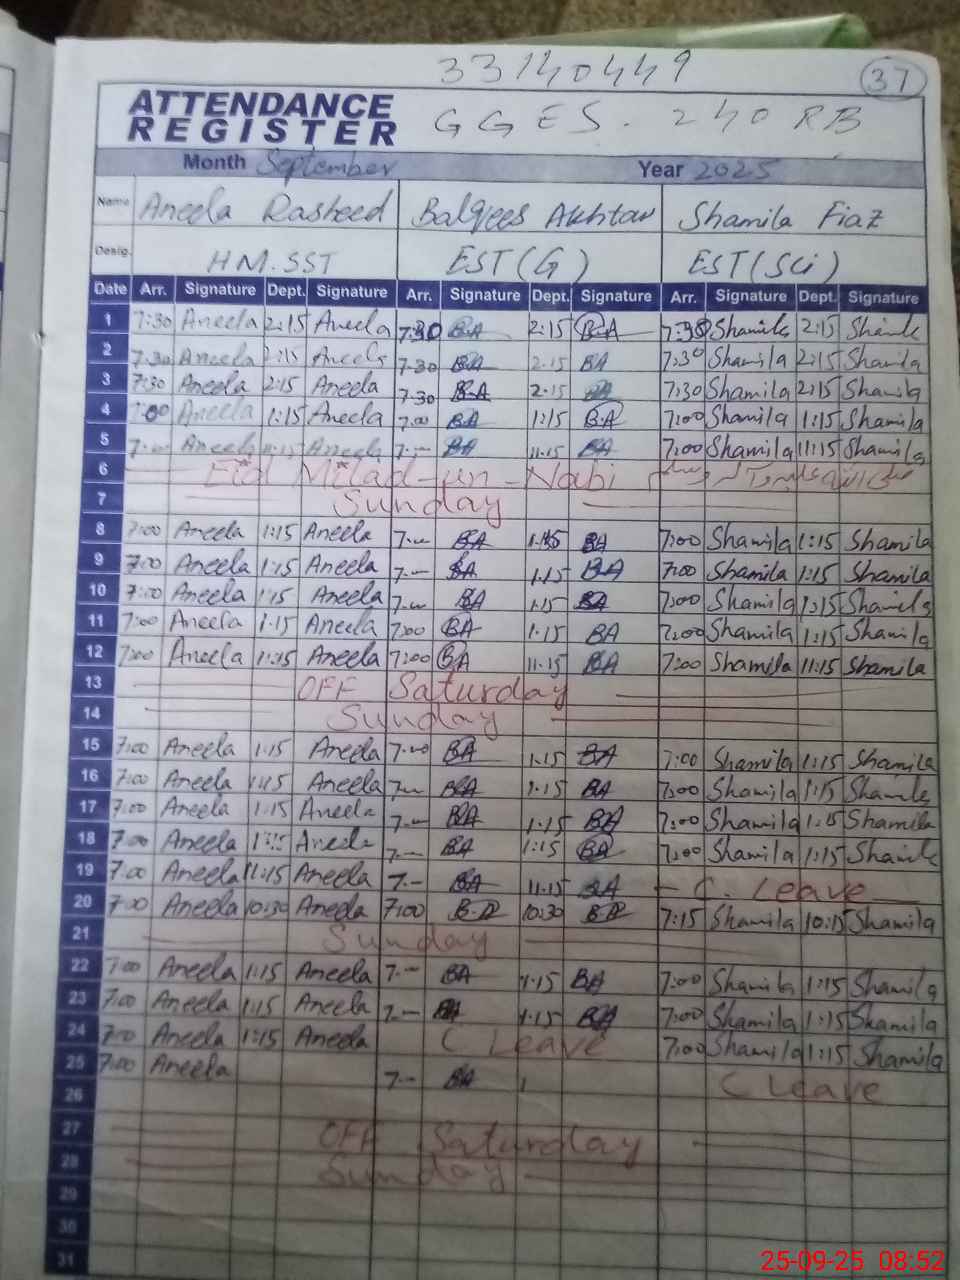 33140449 37
ATTENDANCE REGISTER GGES. 240 RB
Month September Year 2025
Name Aneela Rasheed Balqees Akhtar Shamila Fiaz
Desig. HM.SST EST(G) EST(Sci)
Date Arr. Signature Dept. Signature Arr. Signature Dept. Signature Arr. Signature Dept. Signature
1 7:30 Aneela 2:15 Aneela 7:30 BA 2:15 BA 7:30 Shamila 2:15 Shamila
2 7:30 Aneela 2:15 Aneela 7:30 BA 2.15 BA 7:30 Shamila 2:15 Shamila
3 7:30 Aneela 2:15 Aneela 7:30 BA 2.15 BA 7:30 Shamila 2:15 Shamila
4 7:00 Aneela 1:15 Aneela 7:00 BA 1:15 BA 7:00 Shamila 1:15 Shamila
5 7:-- Aneela Aneela 7.-- BA 11.15 BA 7:00 Shamila 11:15 Shamila
6 Eid Milad-un-Nabi
7 Sunday
8 7:00 Aneela 1:15 Aneela 7.-- BA 1.15 BA 7:00 Shamila 1:15 Shamila
9 7:00 Aneela 1:15 Aneela 7.-- BA 1.15 BA 7:00 Shamila 1:15 Shamila
10 7:00 Aneela 1:15 Aneela 7.-- BA 1.15 BA 7:00 Shamila 1:15 Shamila
11 7:00 Aneela 1:15 Aneela 7:00 BA 1.15 BA 7:00 Shamila 1:15 Shamila
12 7:00 Aneela Aneela 7:00 BA 11.15 BA 7:00 Shamila 11:15 Shamila
13 OFF Saturday
14 Sunday
15 7:00 Aneela 1:15 Aneela 7:00 BA 1.15 BA 7:00 Shamila 1:15 Shamila
16 7:00 Aneela 1:15 Aneela 7.-- BA 1.15 BA 7:00 Shamila 1:15 Shamila
17 7:00 Aneela 1:15 Aneela 7.-- BA 1.15 BA 7:00 Shamila 1:15 Shamila
18 7:00 Aneela 1:15 Aneela 7.-- BA 1:15 BA 7:00 Shamila 1:15 Shamila
19 7:00 Aneela 11:15 Aneela 7.-- BA 11.15 BA C. Leave
20 7:00 Aneela 10:30 Aneela 7:00 B.A 10:30 B.A 7:15 Shamila 10:15 Shamila
21 Sunday
22 7:00 Aneela 1:15 Aneela 7.-- BA 1.15 BA 7:00 Shamila 1:15 Shamila
23 7:00 Aneela 1:15 Aneela 7.-- BA 1.15 BA 7:00 Shamila 1:15 Shamila
24 7:00 Aneela 1:15 Aneela C Leave 7:00 Shamila 1:15 Shamila
25 7:00 Aneela 7.-- BA C Leave
26
27 OFF Saturday
28 Sunday
29
30
31
25-09-25 08:52